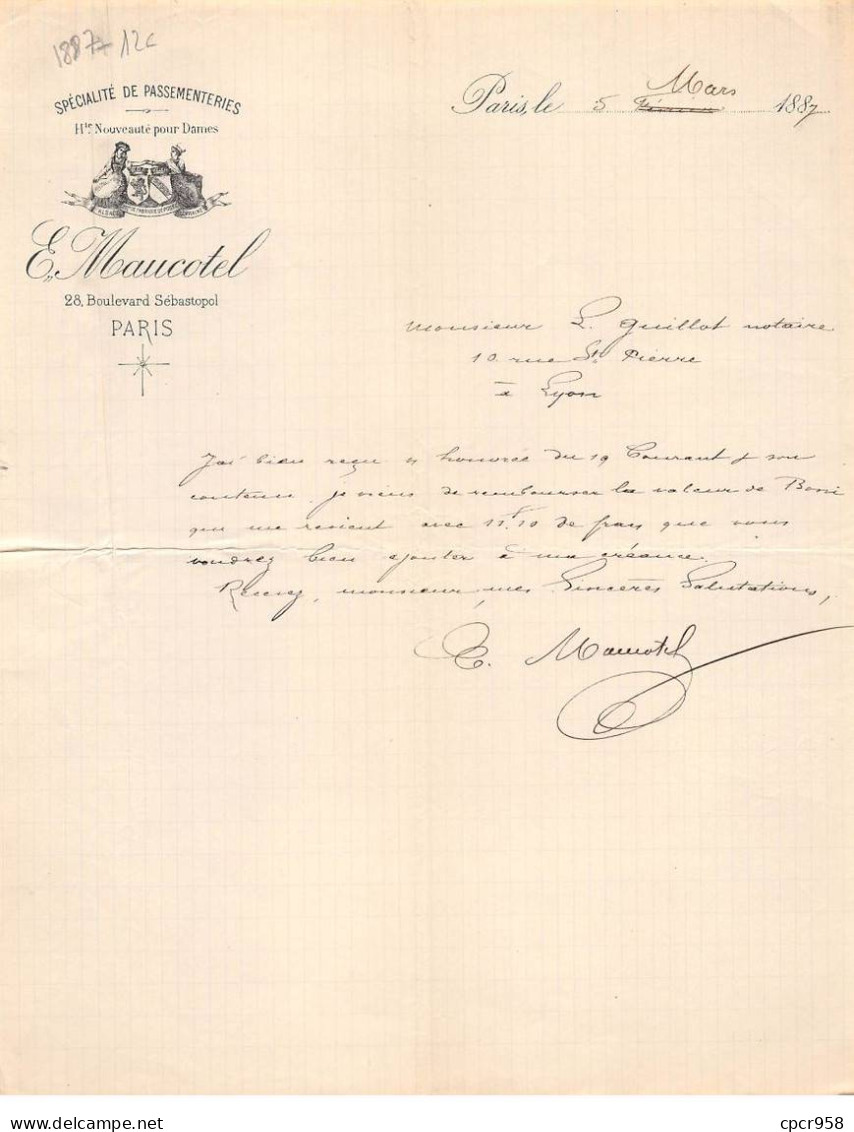 1887 12c
SPÉCIALITÉ DE PASSEMENTERIES
Hte Nouveauté pour Dames
ALSACE LORRAINE
E. Maucotel
28, Boulevard Sébastopol
PARIS
Paris, le 5 Février Mars 1887
Monsieur L. Guillot notaire
10 rue St Pierre
à Lyon
J'ai bien reçu honorée du 19 Courant & son
contenu. je viens de rembourser la valeur de
qui me revient avec 11f.10 de frais que vous
voudrez bien ajouter à ma créance.
Recevez, monsieur, mes Sincères Salutations,
E. Maucotel
cpcr958